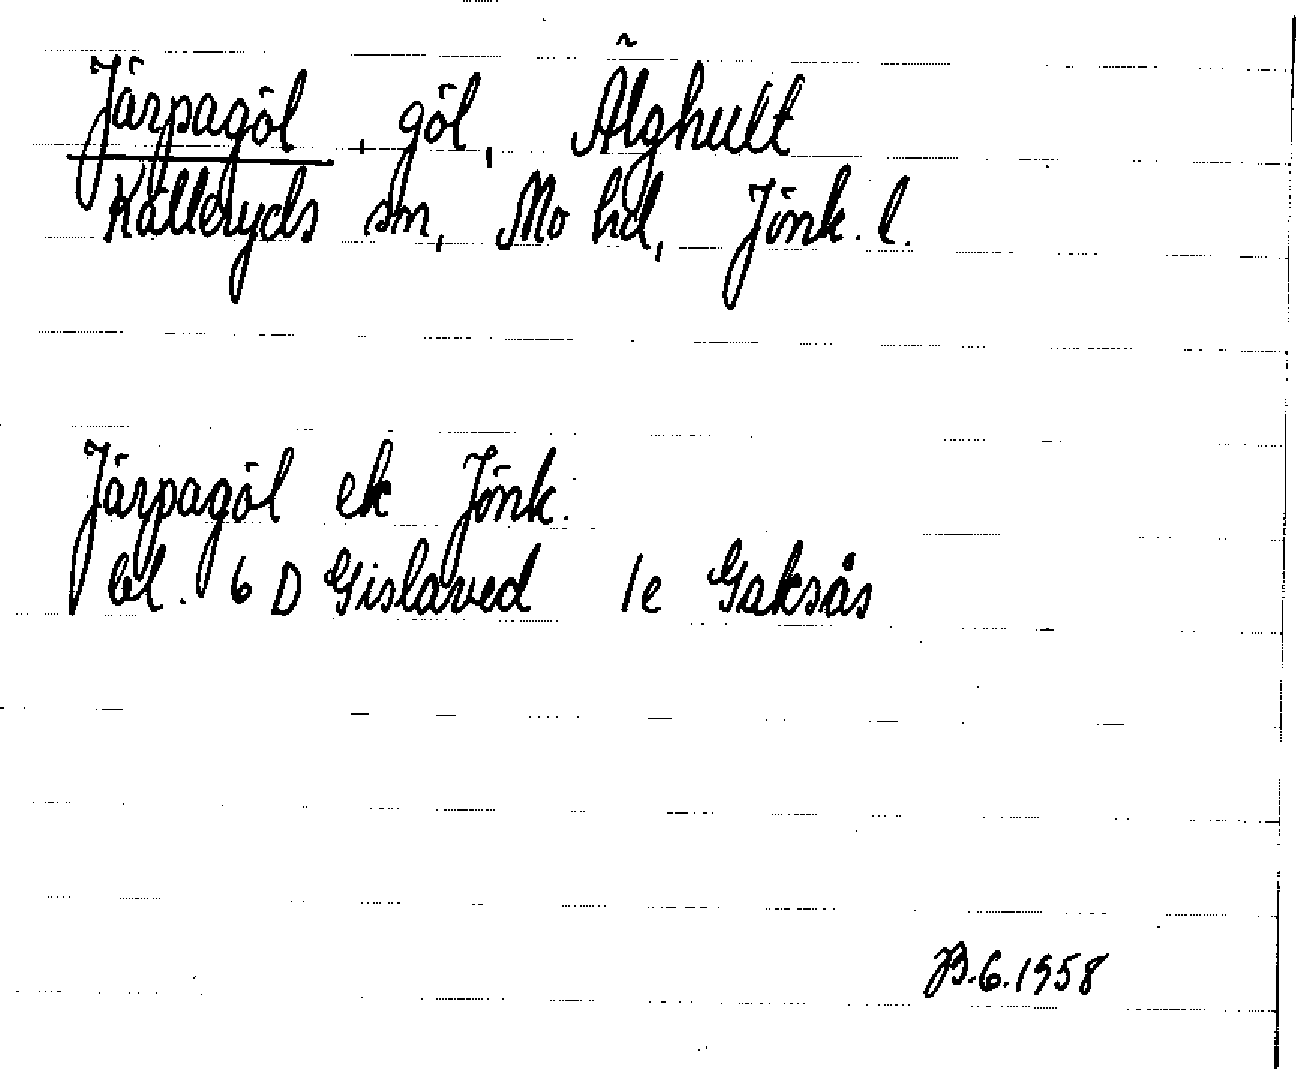 Järpagöl, göl, Älghult
Kålleryds sn, Mo hd, Jönk. l.
Järpagöl ek Jönk.
bl. 6 D Gislaved 1e Gaksås
B.6.1958